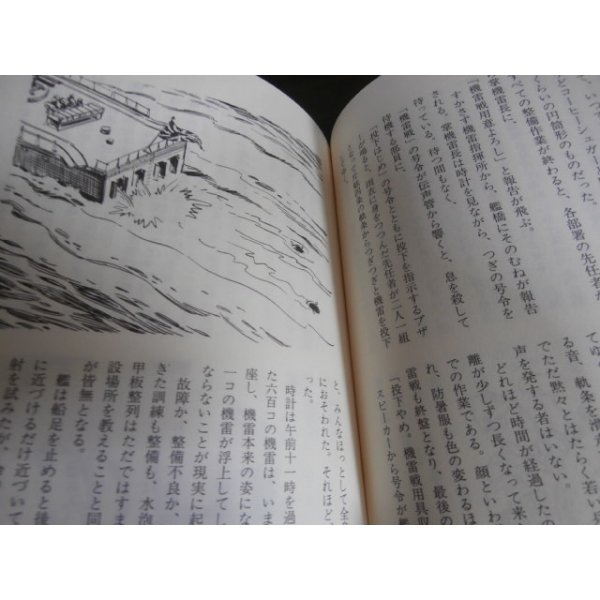 て、いつ
どコーヒーシュガー
くらいの円筒形のものだった。
すべての整備作業が終わると、各部署の先任者が
掌機雷長に、
「機雷戦用意よろし」と報告が飛ぶ。
すかさず機雷戦指揮所から、艦橋にそのむねが報告
される。掌機雷長は時計を見ながら、つぎの号令を
待っている。待つ間もなく、
「機雷戦」の号令が伝声管から響くと、息を殺して
待機する他員に、
「投下はじめ」の号令とともに投下を指示するブザ
ーが鳴ると、雨衣に身をつつんだ先任者が二人一組
となって
軌条からつぎつぎと機雷を投下
てゆ
る音、軌条を滑
でただ黙々とはたらく若い兵
声を発する者はいない。
どれほど時間が経過した
離が少しずつ長くなって来
での作業である。顔といわ
れ、防暑服も色の変わるほ
雷戦も終盤となり、最後の
「投下やめ。機雷戦用具収
スピーカーから号令が艦
と、みんなほっとして全
におそわれた。それほど、
った。
時計は午前十一時を過
た六百コの機雷は、いま
座し、機雷本来の姿にな
一コの機雷が浮上してし
ならないことが現実に起
故障か、整備不良か、
きた訓練も整備も、水泡
甲板整列はただではすま
設場所を教えることと同
が皆無となる。
艦は船足を止めると後
に近づけるだけ近づいて
射を試みたが、